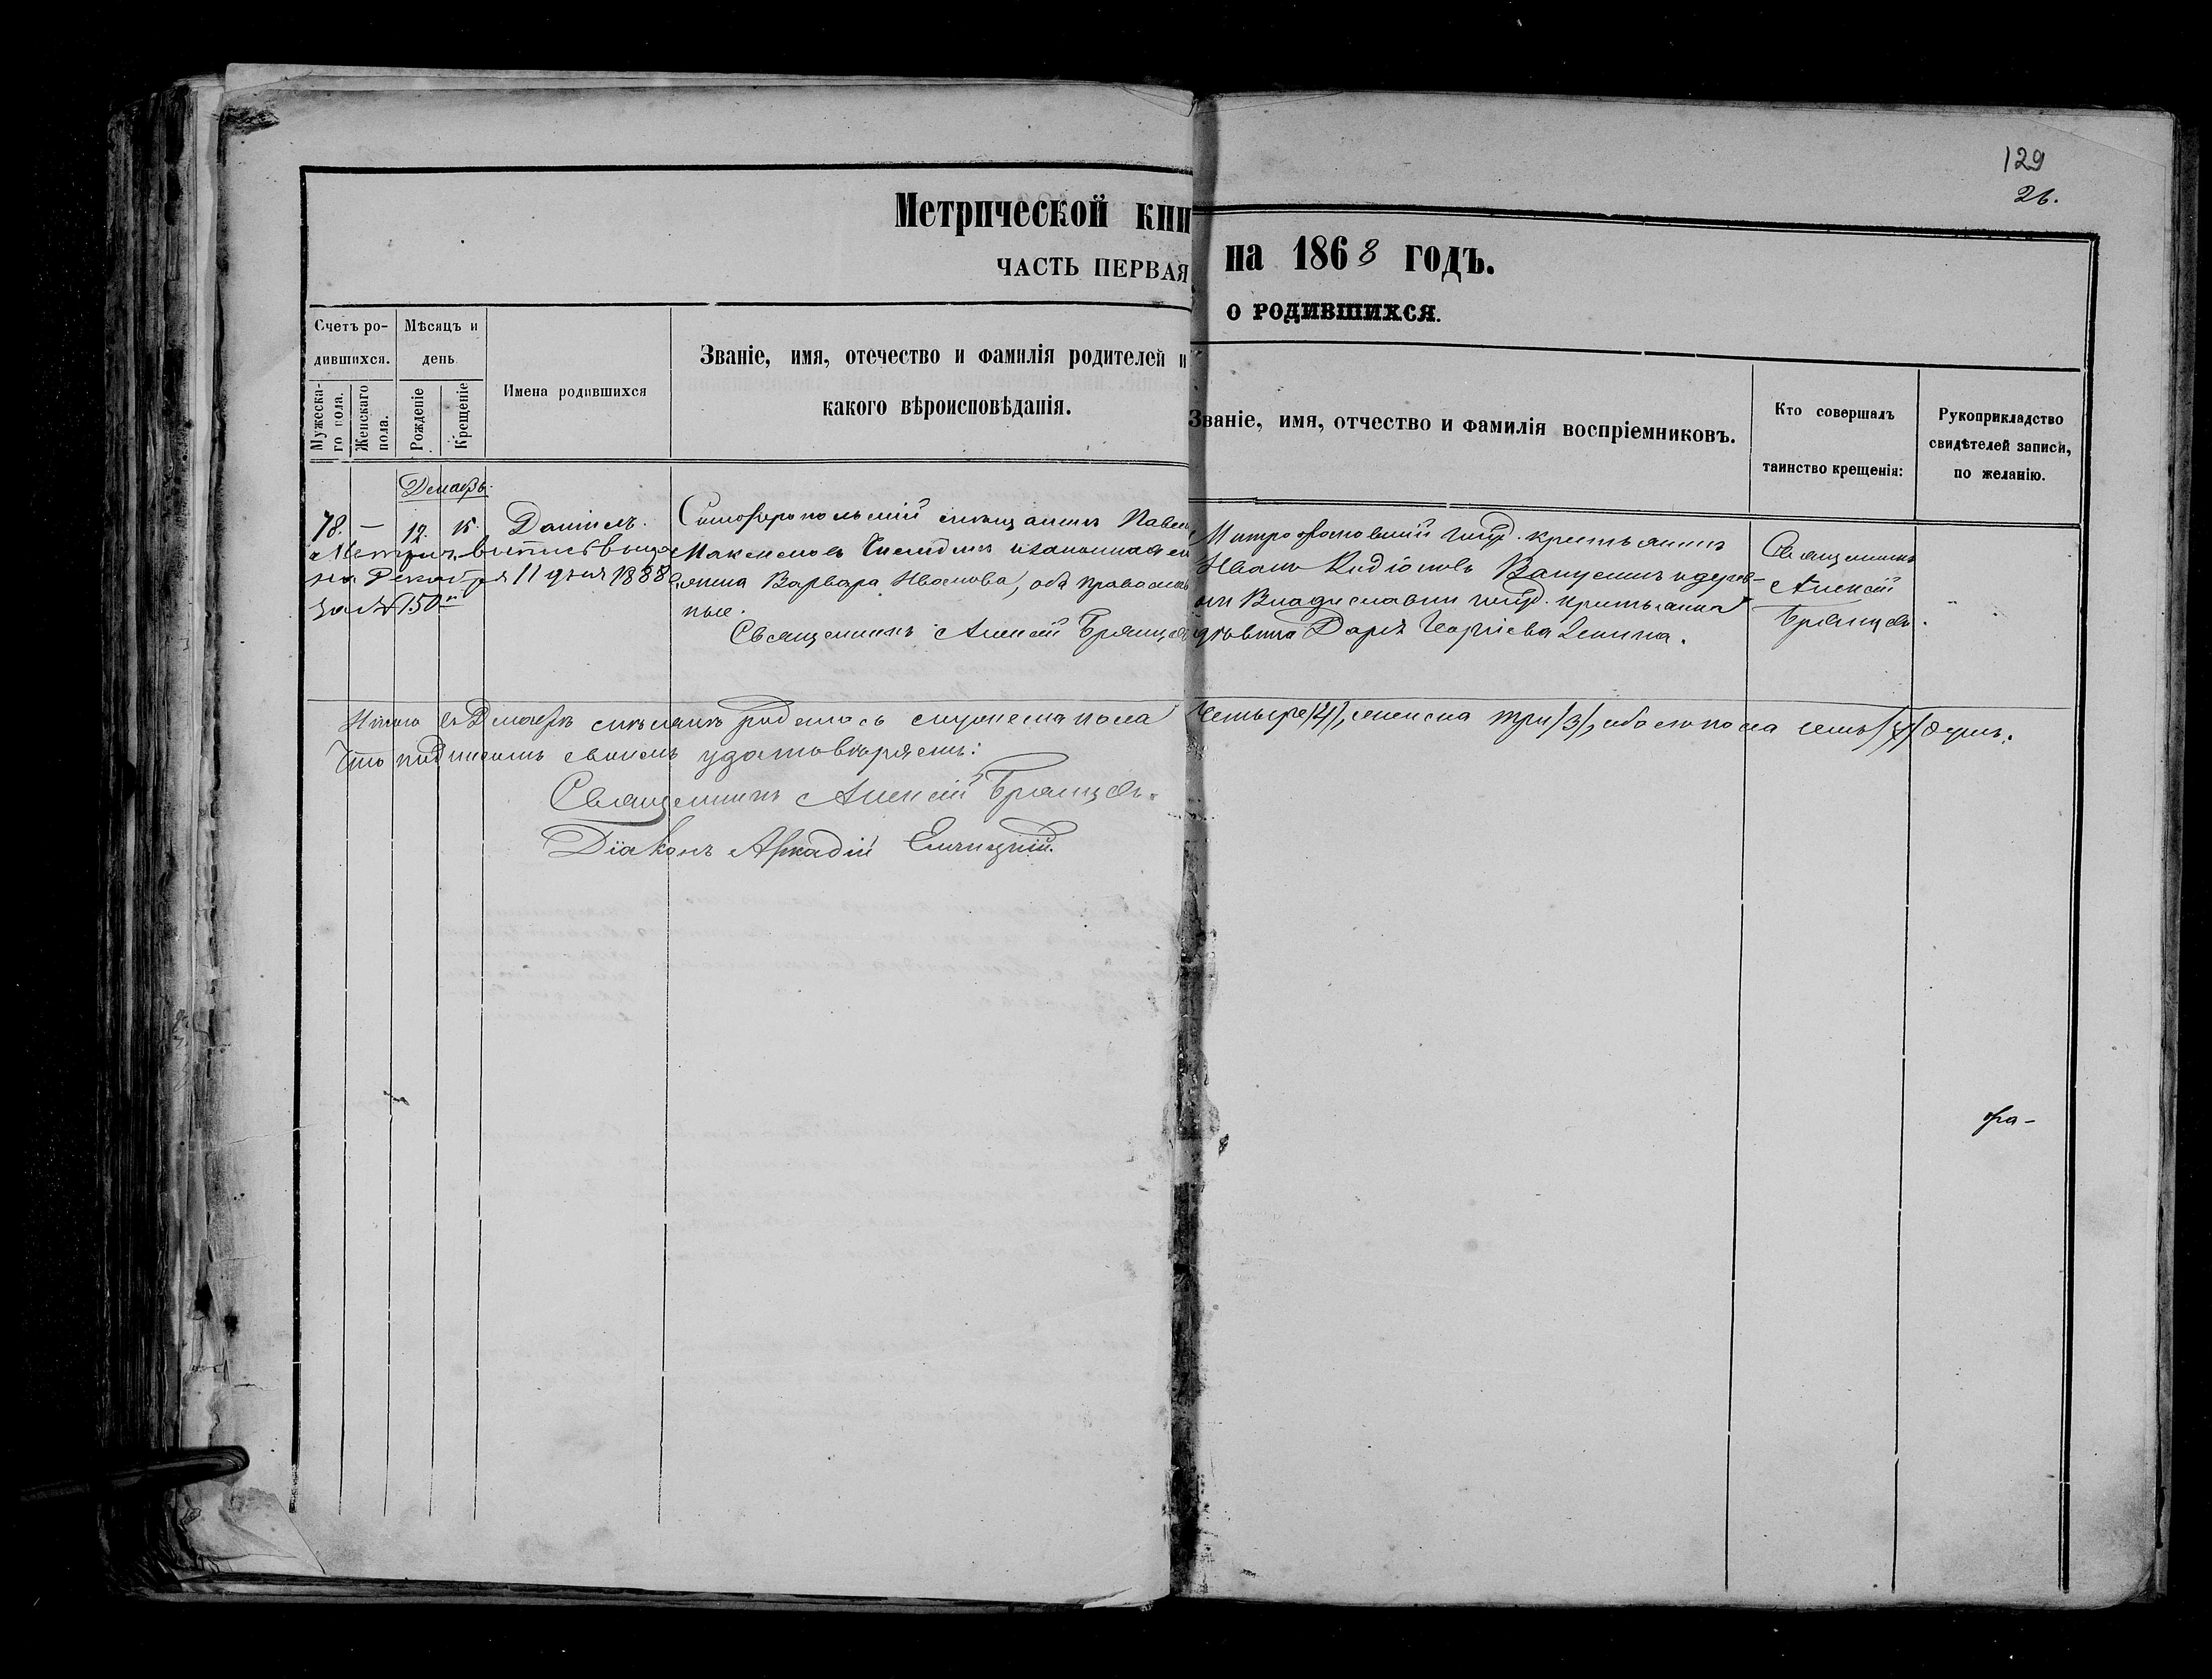 129
26.
Метрической кни
на 1868 годъ.
ЧАСТЬ ПЕРВАЯ.
о родившихся.
Счетъ ро-
дившихся.
Мужеска-
го пола.
Женскаго
пола.
Мѣсяцъ и
день
Рожденіе
Крещеніе
Имена родившихся
Званіе, имя, отечество и фамилія родителей и
какого вѣроисповѣданія.
Званіе, имя, отчество и фамилія воспріемниковъ.
Кто совершалъ
таинство крещенія:
Рукоприкладство
свидѣтелей записи,
по желанію.
Декабрь.
78. — 12. 15. Даніилъ.
Метрич. выпись выда
на Декабря 11 дня 1888
за № 150
Симферопольскій мѣщанинъ Паве
Максимовъ и законная
жена Варвара Иванова, оба православ
ные.
Священникъ Алексій Брянцевъ
Митрофановскій госуд. крестьянинъ
Иванъ Родіоновъ и дерев-
ни Владиславки госуд. крестьянина
дѣвица Дарія Георгіева
Священникъ
Алексій
Брянцевъ.
Итого въ Декабрѣ мѣсяцѣ родилось мужеска пола четыре /4/, женска три /3/, обоего пола семь /7/ душъ.
Что подписомъ своимъ удостовѣряемъ:
Священникъ Алексій Брянцевъ.
Діаконъ Аркадій